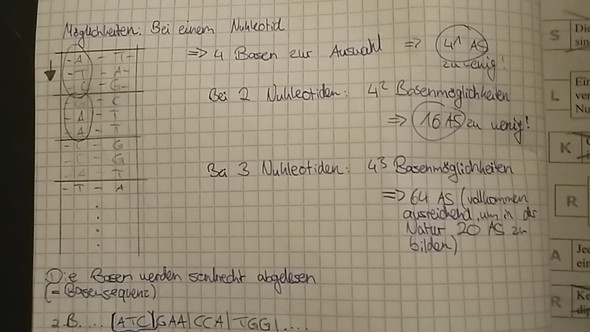 Möglichkeiten: Bei einem Nukleotid
=> 4 Basen zur Auswahl => 4¹ AS
zu wenig!
Bei 2 Nukleotiden: 4² Basenmöglichkeiten
=> 16 AS zu wenig!
Bei 3 Nukleotiden: 4³ Basenmöglichkeiten
=> 64 AS (vollkommen
ausreichend, um in der
Natur 20 AS zu
bilden)
- A - T -
- T - A -
- C - G -
- G - C
- A - T
- A - T
- C - G
- C - G
- A - T
- T - A
① Die Basen werden senkrecht abgelesen
(= Basensequenz)
z.B. ... |ATC|GAA|CCA|TGG| ...
S
Die
sin
L
Ein
ver
Nu
K
R
A
Jed
ein
R
Ke